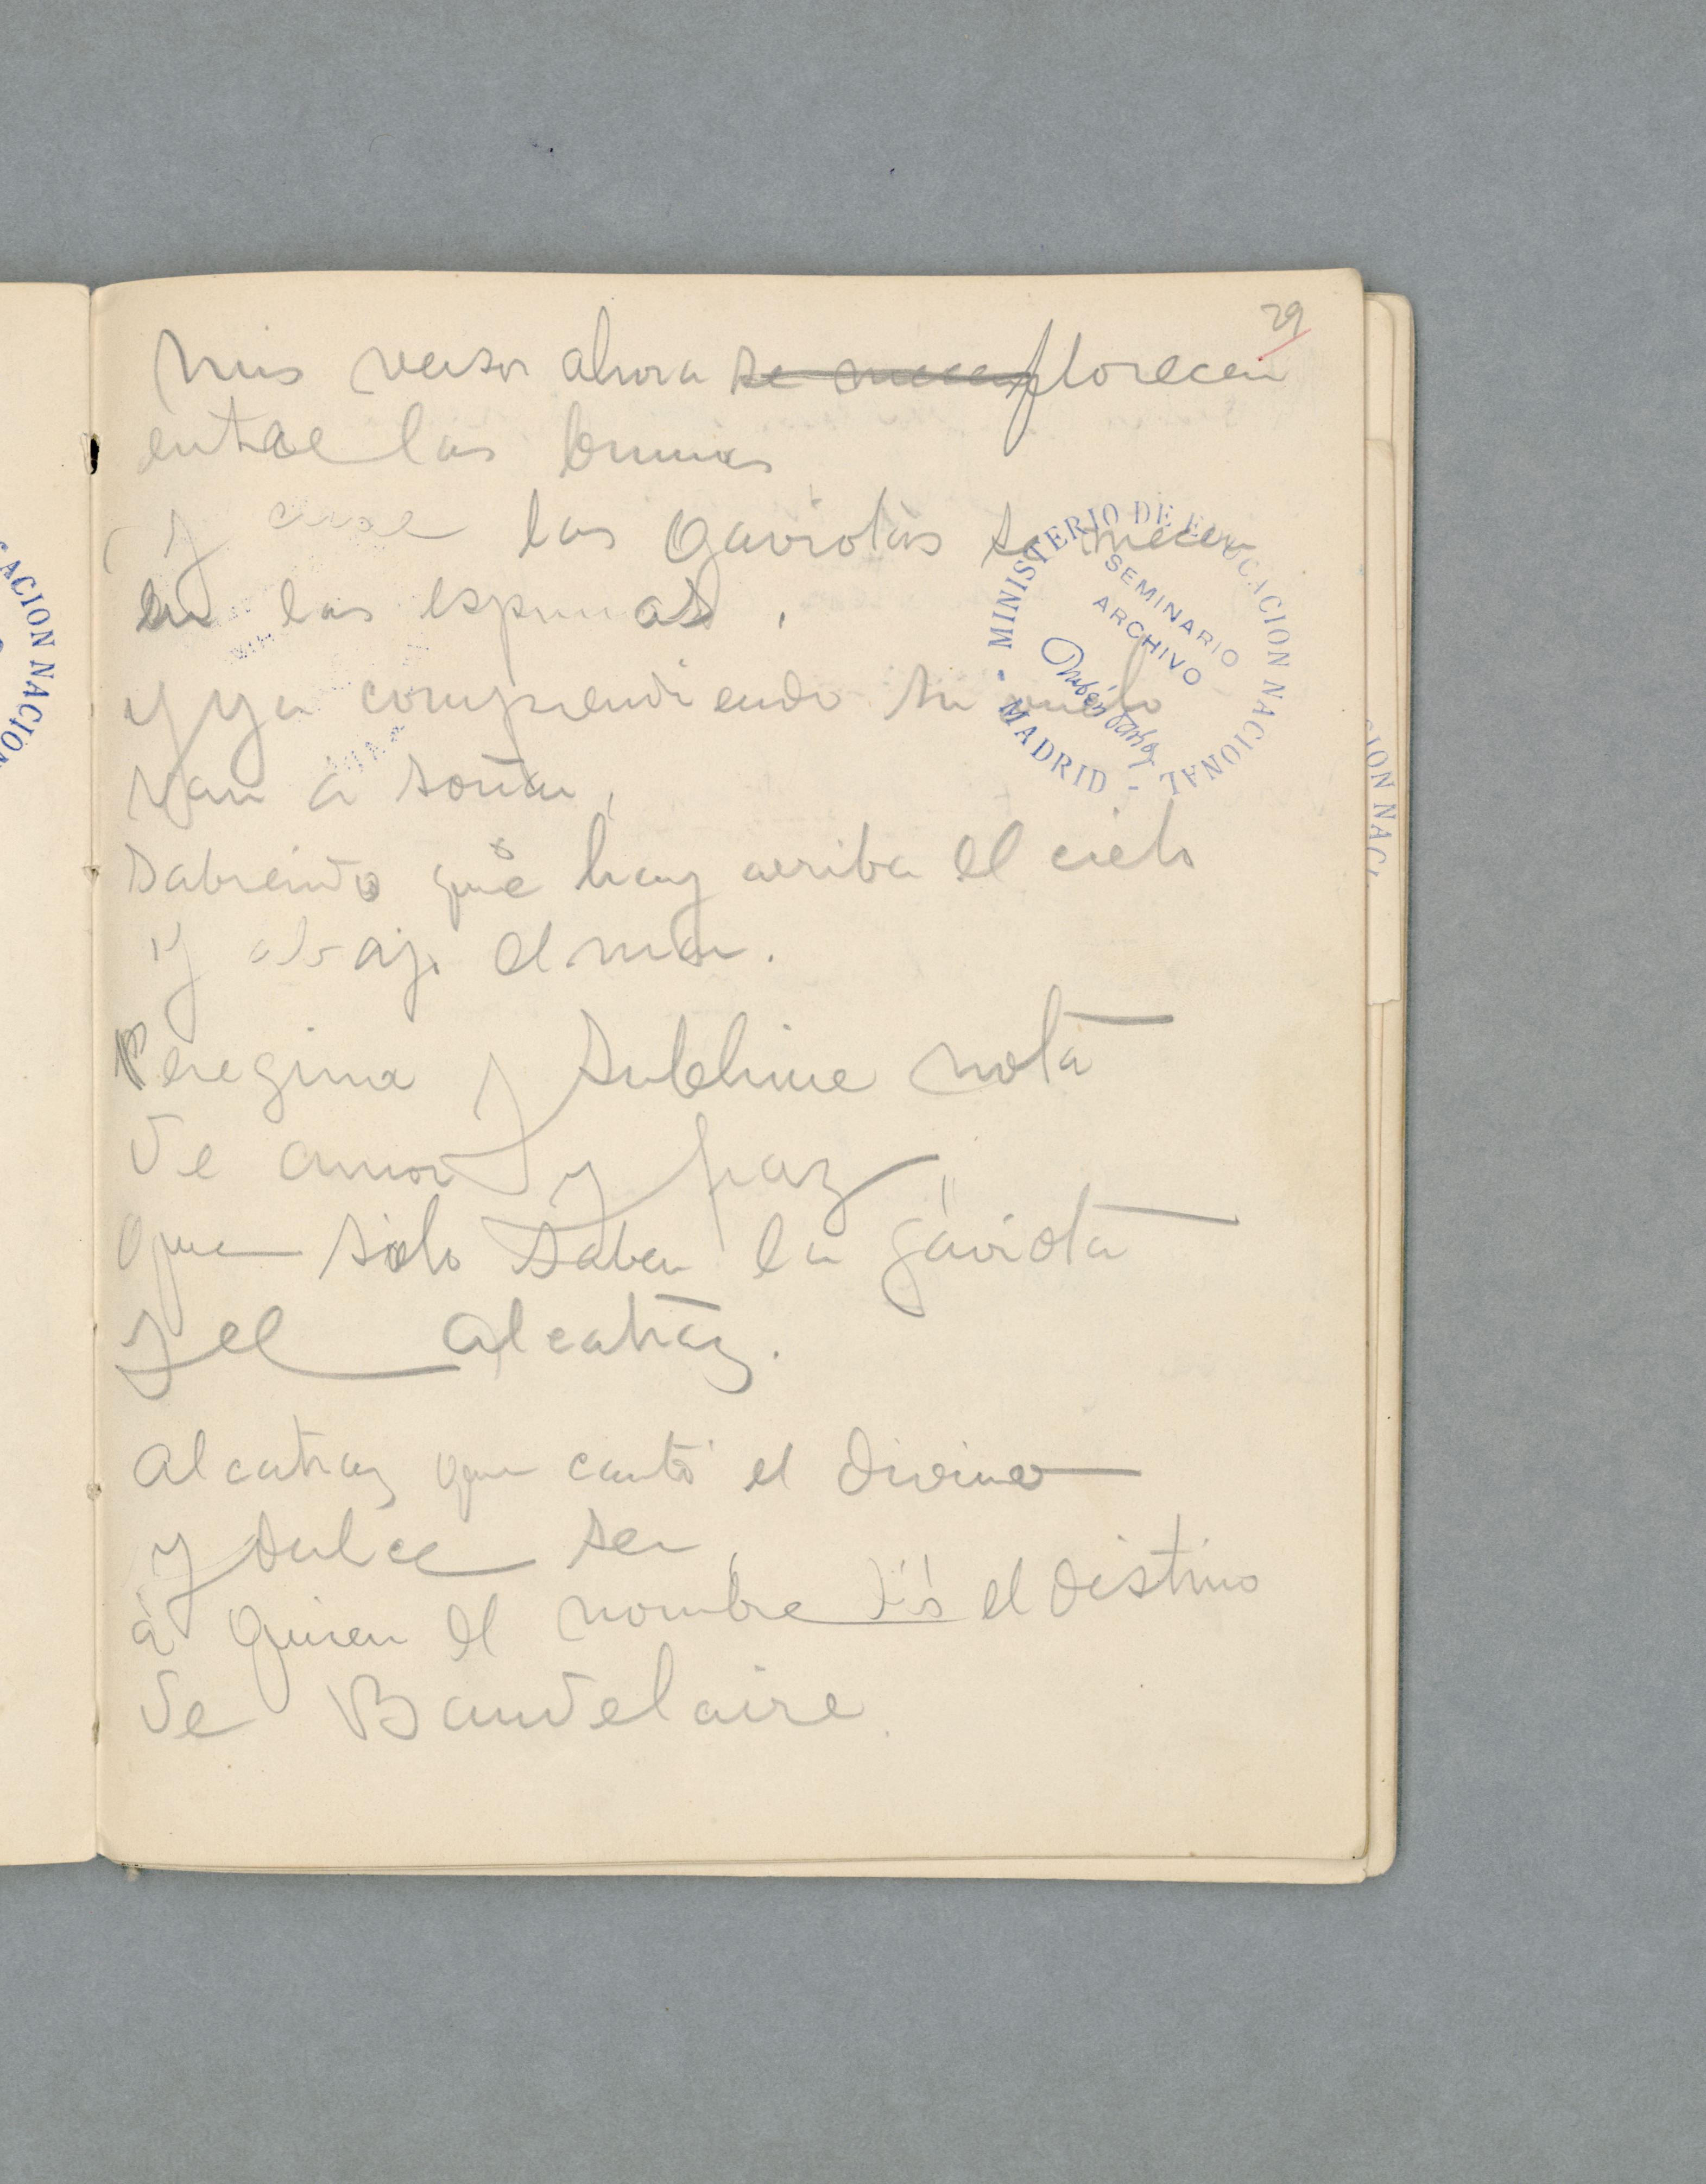 29
mis versos ahora se mecen florecen
entre las brumas
y cual las gaviotas se mecen
en las espumas,
y ya comprendiendo su vuelo
van a soñar,
sabiendo que hay arriba el cielo
y abajo el mar.
Peregrina y sublime nota
de amor y paz
que sólo saben la gaviota
y el alcatraz.
alcatraz que cantó el divino
y dulce ser,
á quien el nombre dió el destino
de Baudelaire.
MINISTERIO DE EDUCACION NACIONAL - MADRID -
SEMINARIO
ARCHIVO
Rubén Darío
CACION NACION
CION NAC